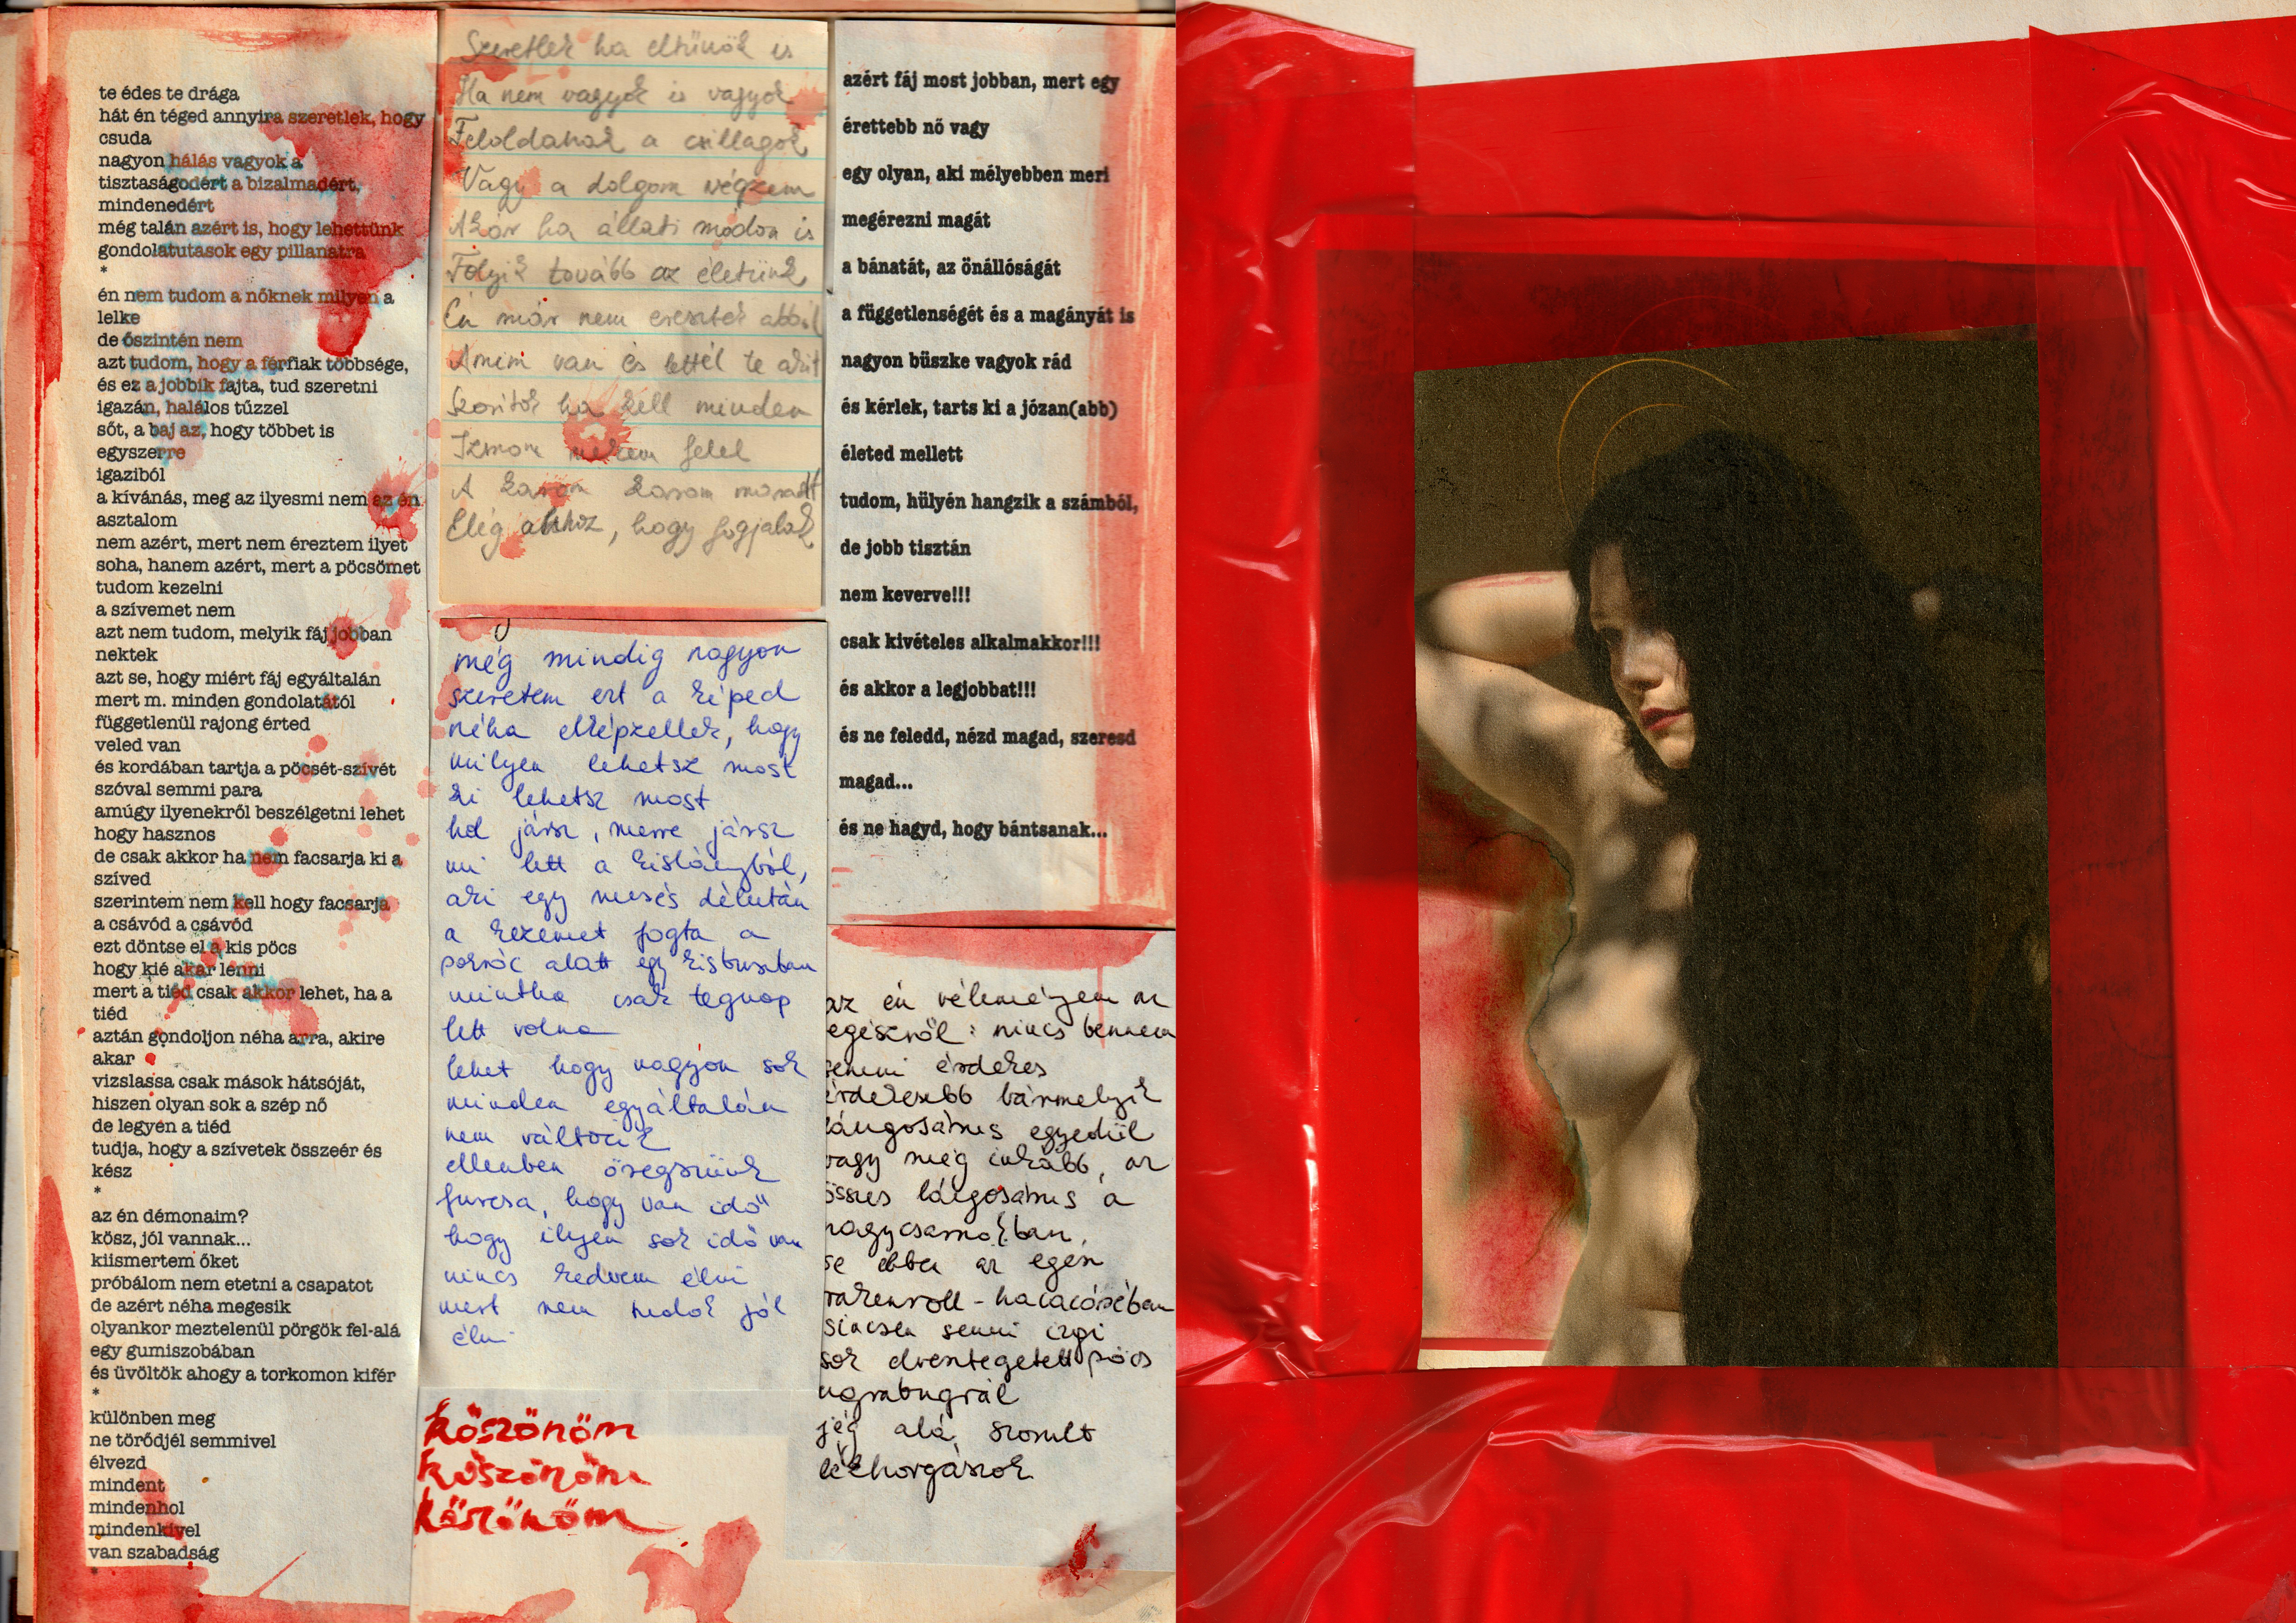 te édes te drága
hát én téged annyira szeretlek, hogy
csuda
nagyon hálás vagyok a
tisztaságodért a bizalmadért,
mindenedért
még talán azért is, hogy lehettünk
gondolatutasok egy pillanatra
*
én nem tudom a nőknek milyen a
lelke
de őszintén nem
azt tudom, hogy a férfiak többsége,
és ez a jobbik fajta, tud szeretni
igazán, halálos tűzzel
sőt, a baj az, hogy többet is
egyszerre
igaziból
a kívánás, meg az ilyesmi nem az én
asztalom
nem azért, mert nem éreztem ilyet
soha, hanem azért, mert a pöcsömet
tudom kezelni
a szívemet nem
azt nem tudom, melyik fáj jobban
nektek
azt se, hogy miért fáj egyáltalán
mert m. minden gondolatától
függetlenül rajong érted
veled van
és kordában tartja a pöcsét-szívét
szóval semmi para
amúgy ilyenekről beszélgetni lehet
hogy hasznos
de csak akkor ha nem facsarja ki a
szíved
szerintem nem kell hogy facsarja
a csávód a csávód
ezt döntse el a kis pöcs
hogy kié akar lenni
mert a tiéd csak akkor lehet, ha a
tiéd
aztán gondoljon néha arra, akire
akar
vizslassa csak mások hátsóját,
hiszen olyan sok a szép nő
de legyen a tiéd
tudja, hogy a szívetek összeér és
kész
*
az én démonaim?
kösz, jól vannak...
kiismertem őket
próbálom nem etetni a csapatot
de azért néha megesik
olyankor meztelenül pörgök fel-alá
egy gumiszobában
és üvöltök ahogy a torkomon kifér
*
különben meg
ne törődjél semmivel
élvezd
mindent
mindenhol
mindenkivel
van szabadság
*
Szeretlek ha eltűnök is
Ha nem vagyok is vagyok
Feloldanak a csillagok
Vagy a dolgom végzem
Akár ha állati módon is
Folyik tovább az életünk
Én már nem eresztek abból
Amim van és lettél te akit
Szorítok ha kell minden
Izmom nekem felel
A karom karom maradt
Elég ahhoz, hogy fogjalak
még mindig nagyon
szeretem ezt a képed
néha elképzellek, hogy
milyen lehetsz most
ki lehetsz most
hol jársz, merre jársz
mi lett a kislányból,
aki egy mesés délután
a kezemet fogta a
pokróc alatt egy kisbuszban
mintha csak tegnap
lett volna
lehet hogy nagyon sok
minden egyáltalán
nem változik
ellenben öregszünk
furcsa, hogy van idő
hogy ilyen sok idő van
nincs kedvem élni
mert nem tudok jól
élni
köszönöm
köszönöm
köszönöm
azért fáj most jobban, mert egy
érettebb nő vagy
egy olyan, aki mélyebben meri
megérezni magát
a bánatát, az önállóságát
a függetlenségét és a magányát is
nagyon büszke vagyok rád
és kérlek, tarts ki a józan(abb)
életed mellett
tudom, hülyén hangzik a számból,
de jobb tisztán
nem keverve!!!
csak kivételes alkalmakkor!!!
és akkor a legjobbat!!!
és ne feledd, nézd magad, szeresd
magad...
és ne hagyd, hogy bántsanak...
az én véleményem az
egészről: nincs bennem
semmi érdekes
érdekesebb bármelyik
lángosárus egyedül
vagy még inkább, az
összes lángosárus a
nagycsarnokban,
se ebben az egész
rakenroll-hacacáréban
sincsen semmi izgi
sok elventegetett pöcs
ugrabugrál
jég alá szorult
lékhorgászok